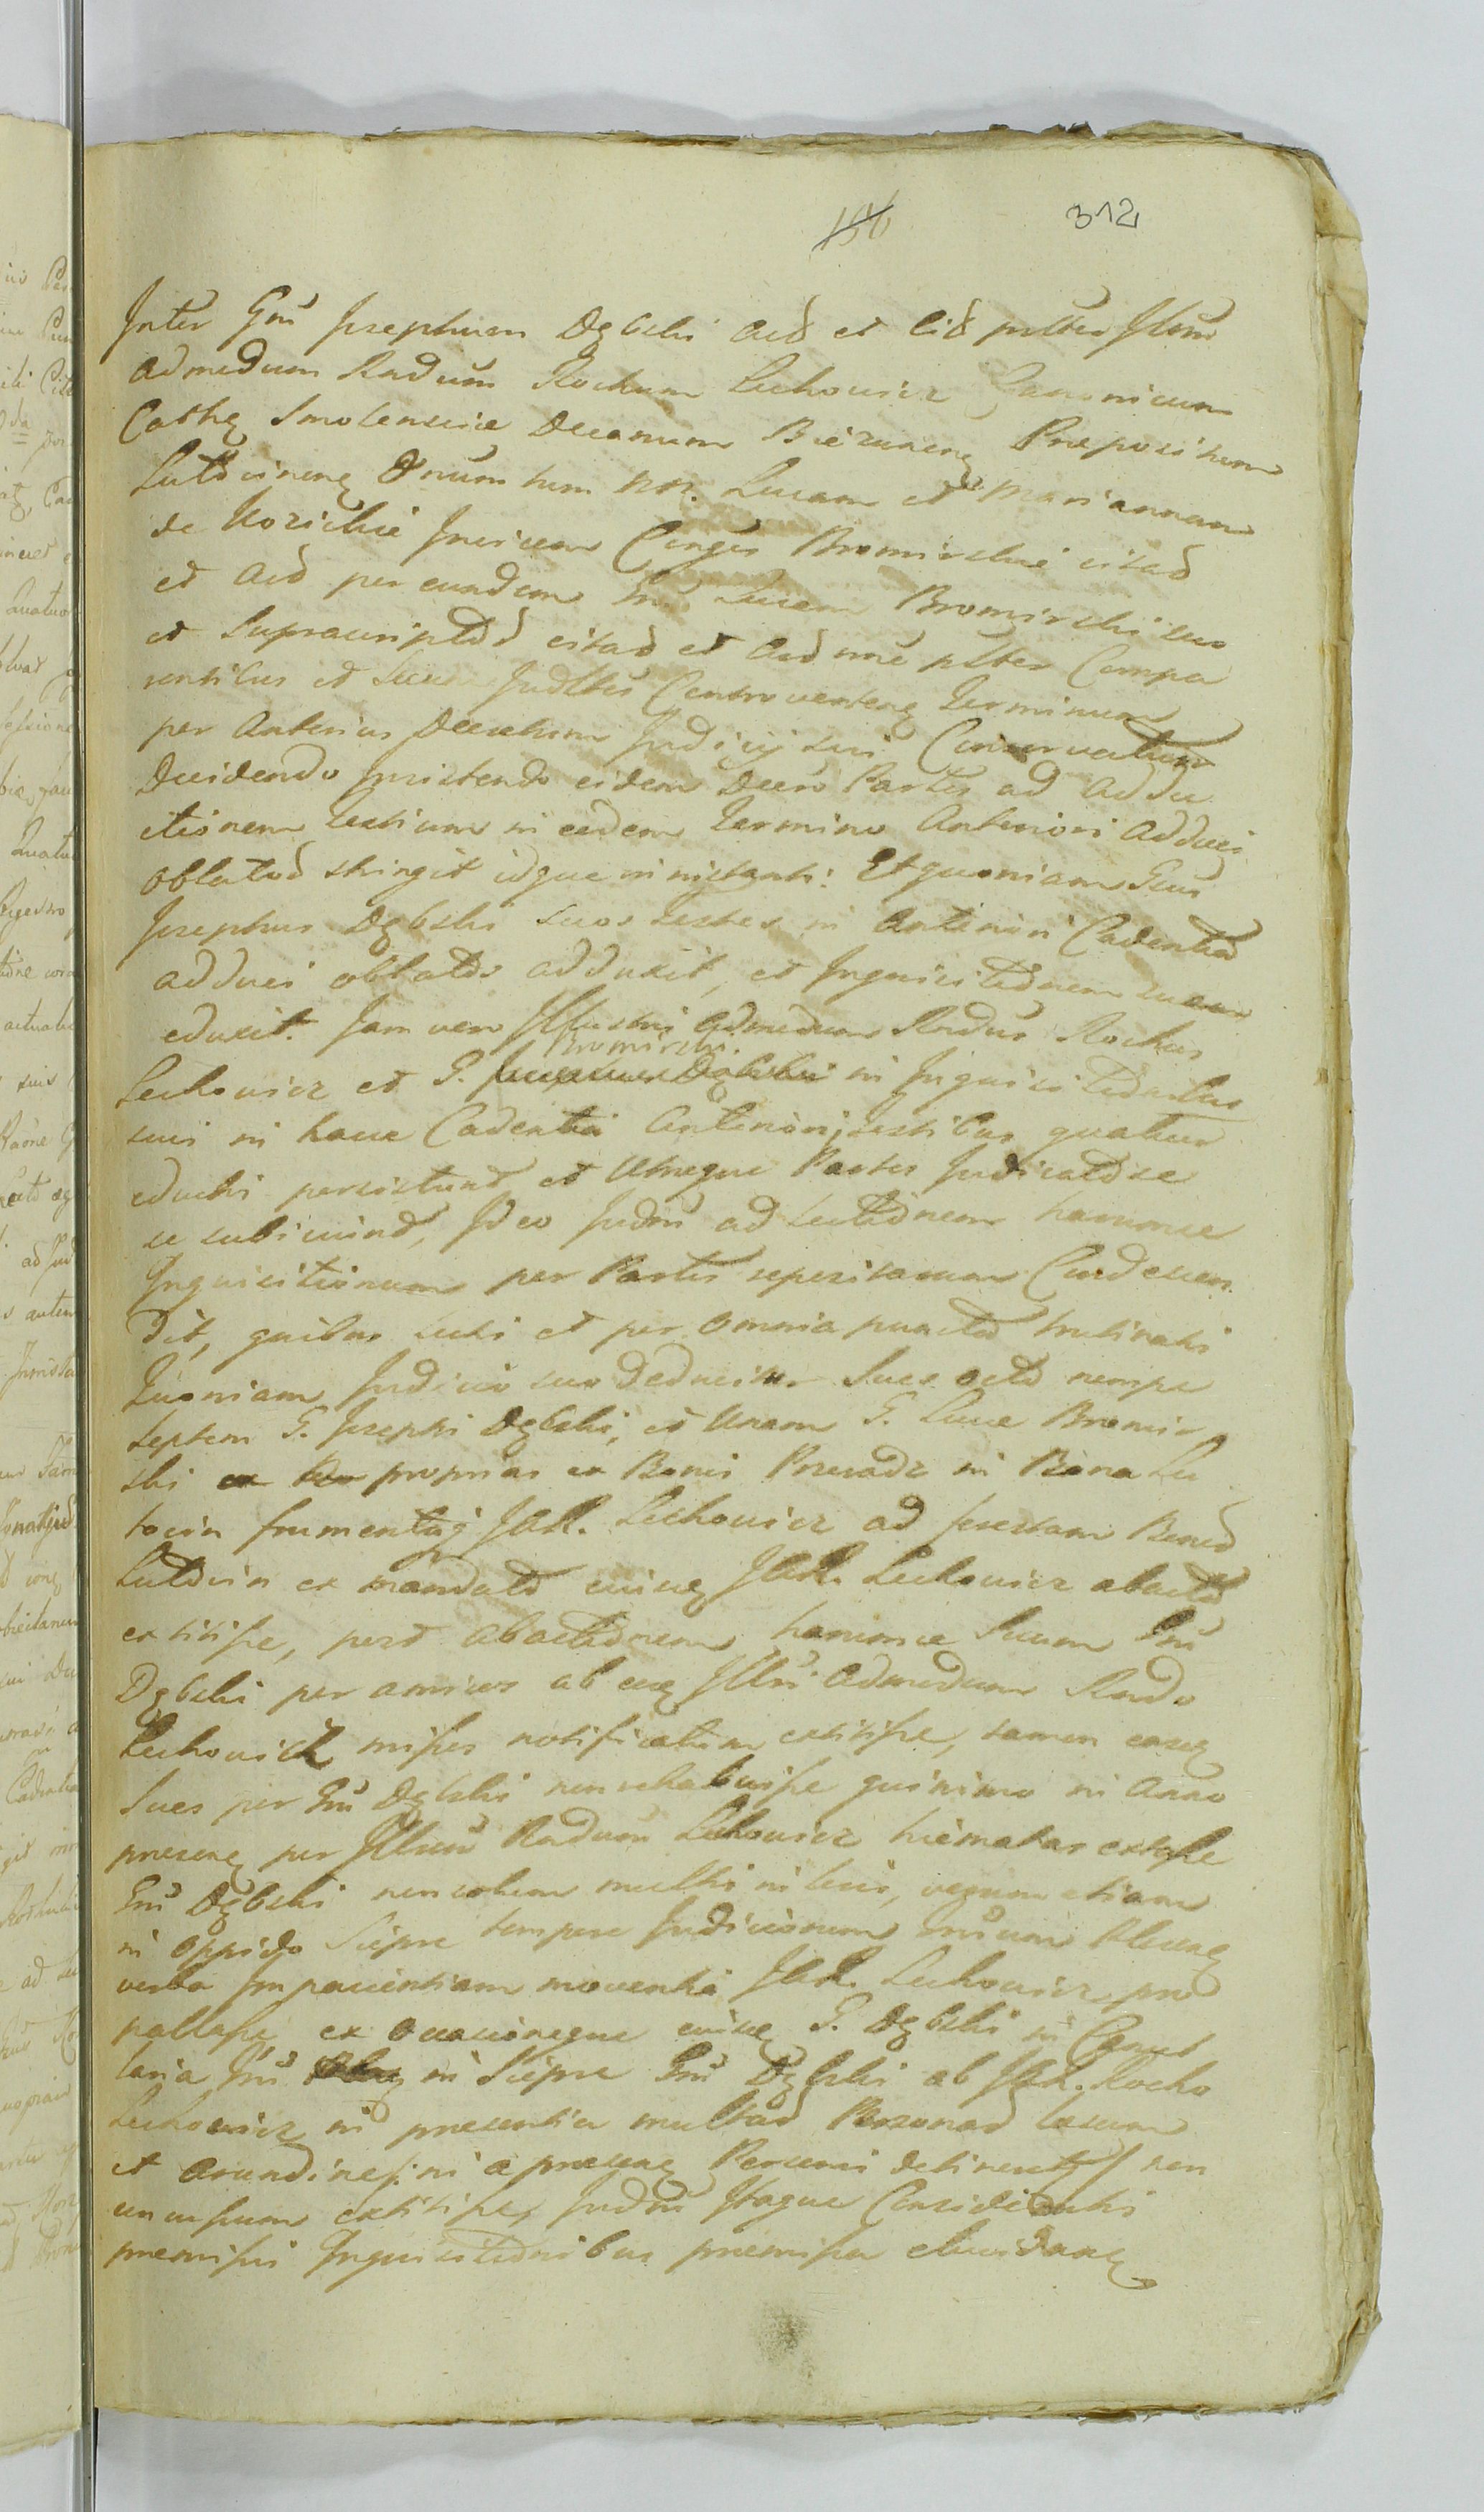 156 312
Inter Gnũ Josephum Dąbski Act et Cit pltter Illum
admodum Rndum Rochum Lechowicz Canonicum
Cathę Smolenscię Decanum Bieżunenę Præpositum
Lutocinenę tum nn. Lucam et Mariannam
de Kozickie Conges Bromirskie citat
et Act per eundem Lucam Bromirski suo
et Suprascripto citat et Act nnẽ pltter Compa
rentibus et Judtter Controvertenę Terminum
per Anterius Decretum Judicij sui Conservatum
Decidendo Insistendo eidem Decro Partes ad Addu
ctionem Testium in eodem Termino Anteriori adduci
oblatos stringit idque in instanti: Et quoniam Gnus
Josephus Dąbski suos Testes in Anteriori Cadentia
adduci oblatos adduxit, et Inquisitionem suam
eduxit. Jam vero Illustris Admodum Rndus Rochus
Bromirski
Lechowicz et G. Dąbski in Inquisitionibus
suis in hacce Cadentia Anteriori, Testibus quatuor
educti persistunt et Utreque Partes
se subiiciunt, Ideo Judm ad Lectionem harumce
Inquisitionum per Partes repositarum Condescen
dit, quibus lectis et per omnia puncta trutinatis
Quoniam Judicio suo deducitur Sues octo nempe
septem G. Josephi Dąbski, et Unam G. Luce Bromir
ski ex proprias ex Bonis in Bona Lu
tocin frumentaq IllR. Lechowicz ad Bonor
Lutocin ex mandato eiusę IllR. Lechowicz abactas
extitisse, post abactionem harumce Suum Gnũ
Dąbski per amicos ab eoę Illri Admodum Rndo
Lechowicz missos notificatum extitisse, tamen easę
Sues per Gnũ Dąbski non rehabuisse quinimo in Anno
presenę per Illum Rndum Lechowicz hiematas extasse
Gnũ Dąbski non solum multis in locis, verum etiam
in oppido Siepre tempore Judiciorum
verba Impacientiam moventia IllR. Lechowicz pro
pallasse ex occasioneque eiusę G. Dąbski in Cancel
laria in Siepre Gnũ Dąbski ab IllR. Rocho
Lechowicz in presentia multar Personar lesum
et arundine in a presenę Personis detinenty non
extitisse, Judm Itaque Consideratis
premissis Inquisitionibus premissa elucidanę